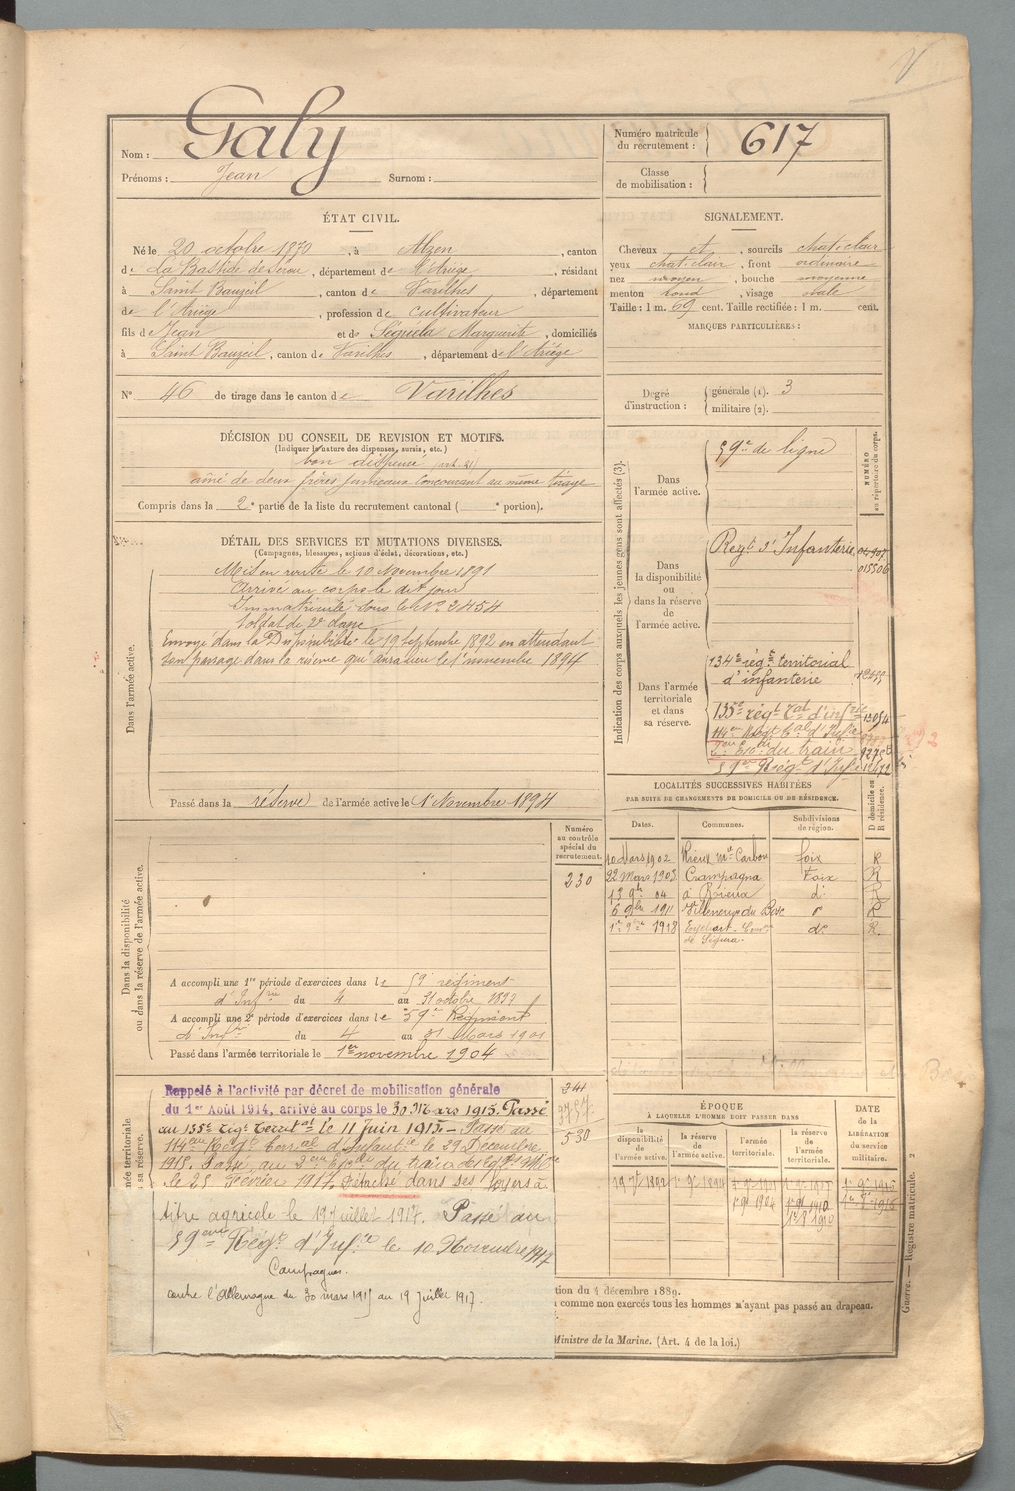 Nom : Galy
Prénoms : Jean Surnom :
Numéro matricule du recrutement : 617
Classe de mobilisation :
ÉTAT CIVIL.
Né le 20 octobre 1870, à Alzen, canton
de La Bastide de Sérou, département de l'Ariège, résidant
à Saint Bauzeil, canton de Varilhes, département
de l'Ariège, profession de cultivateur
fils de Jean et de Séguéla Marguerite, domiciliés
à Saint Bauzeil, canton de Varilhes, département de l'Ariège
N° 46 de tirage dans le canton de Varilhes
SIGNALEMENT.
Cheveux et, sourcils chat-clair
yeux chat-clair, front ordinaire
nez moyen, bouche moyenne
menton rond, visage ovale
Taille : 1 m. 69 cent. Taille rectifiée : 1 m. cent.
MARQUES PARTICULIÈRES :
Degré d'instruction : générale (1). 3
militaire (2).
DÉCISION DU CONSEIL DE REVISION ET MOTIFS.
(Indiquer la nature des dispenses, sursis, etc.)
bon dispensé (art. 21)
aîné de deux frères jumeaux concourant au même tirage
Compris dans la 2e partie de la liste du recrutement cantonal ( e portion).
DÉTAIL DES SERVICES ET MUTATIONS DIVERSES.
(Campagnes, blessures, actions d'éclat, décorations, etc.)
Dans l'armée active.
Mis en route le 10 Novembre 1891
Arrivé au corps le dit jour
Immatriculé sous le N° 2454
Soldat de 2e classe
Envoyé dans la Disponibilité le 19 septembre 1892 en attendant
son passage dans la réserve qui aura lieu le 1er novembre 1894
Passé dans la réserve de l'armée active le 1er Novembre 1894
Indication des corps auxquels les jeunes gens sont affectés (3).
NUMÉRO au répertoire du corps.
Dans l'armée active.
59e de ligne
Dans la disponibilité ou dans la réserve de l'armée active.
Regt d'Infanterie
015506
Dans l'armée territoriale et dans sa réserve.
134e régt territorial
d'infanterie
135e régt tal d'infrie
114e Regt tal d'Infie
du train
59e Régt d'Infie
LOCALITÉS SUCCESSIVES HABITÉES
PAR SUITE DE CHANGEMENTS DE DOMICILE OU DE RÉSIDENCE.
Dates. Communes. Subdivisions de région. D domicile ou R résidence.
10 Mars 1902 Rieux foix R
22 Mars 1903 Crampagna Foix R
13 9bre 04 à Rieux d° R
6 9bre 1911 Villeneuve du Bosc d° R
1er 1918 de Ségura. do R
Dans la disponibilité ou dans la réserve de l'armée active.
Numéro au contrôle spécial du recrutement.
230
A accompli une 1re période d'exercices dans le 59e régiment
d'Infrie du 4 au 31 octobre
A accompli une 2e période d'exercices dans le 59e Régiment
d'Infie du 4 au 31 Mars 1901
Passé dans l'armée territoriale le 1er novembre 1904
Rappelé à l'activité par décret de mobilisation générale
du 1er Août 1914, arrivé au corps le 30 Mars 1915. Passé
au 135e Rég. Territal le 11 Juin 1915. Passé au
114e Regt Territal d'Infantie le 29 Décembre
1915. Passé au du train des
le 25 Février 1917. Détaché dans ses foyers à
titre agricole le 19 Juillet 1917. Passé au
59eme Régt d'Infie le 10 Novembre 1917
Campagnes.
contre l'Allemagne du 30 mars 1915 au 19 Juillet 1917.
341
530
ÉPOQUE
À LAQUELLE L'HOMME DOIT PASSER DANS
la disponibilité de l'armée active.
la réserve de l'armée active.
l'armée territoriale.
la réserve de l'armée territoriale.
DATE DE LA LIBÉRATION du service militaire.
19 7bre 1892 1er 9bre 1894
1er 9bre 1904
1er 9bre 1910
1er 9bre 1916
tion du 4 décembre 1889.
comme non exercés tous les hommes n'ayant pas passé au drapeau.
Ministre de la Marine. (Art. 4 de la loi.)
Guerre. — Registre matricule. 2